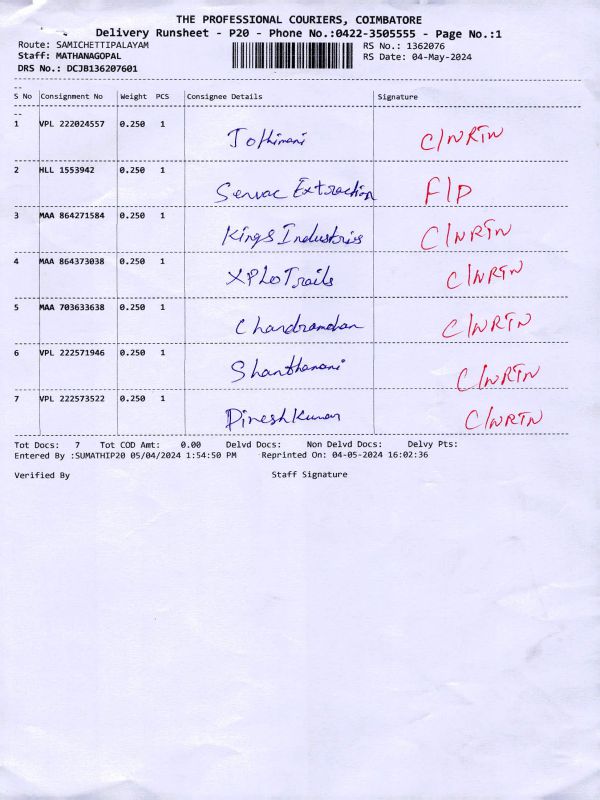 THE PROFESSIONAL COURIERS, COIMBATORE
Delivery Runsheet - P20 - Phone No.:0422-3505555 - Page No.:1
Route: SAMICHETTIPALAYAM RS No.: 1362076
Staff: MATHANAGOPAL RS Date: 04-May-2024
DRS No.: DCJB136207601
S No Consignment No Weight PCS Consignee Details Signature
1 VPL 222024557 0.250 1 Jothimani C/NRTN
2 HLL 1553942 0.250 1 Servac Extraction F/D
3 MAA 864271584 0.250 1 Kings Industries C/NRTN
4 MAA 864373038 0.250 1 XPLO Trails C/NRTN
5 MAA 703633638 0.250 1 Chandramohan C/NRTN
6 VPL 222571946 0.250 1 Shanthamani C/NRTN
7 VPL 222573522 0.250 1 Dinesh Kumar C/NRTN
Tot Docs: 7 Tot COD Amt: 0.00 Delvd Docs: Non Delvd Docs: Delvy Pts:
Entered By :SUMATHIP20 05/04/2024 1:54:50 PM Reprinted On: 04-05-2024 16:02:36
Verified By Staff Signature